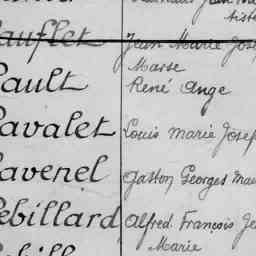 auflet Jean Marie Jose
Marse
ault René Ange
avalet Louis Marie Josep
avenel Gaston Georges Mau
ebillard Alfred François Je
Marie